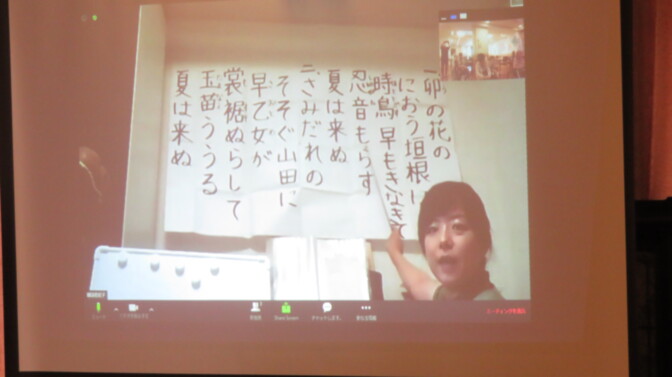 一 卯の花の
におう垣根に
時鳥 早もきなきて
忍音もらす
夏は来ぬ
二 さみだれの
そそぐ山田に
早乙女が
裳裾ぬらして
玉苗ううる
夏は来ぬ
Share Screen